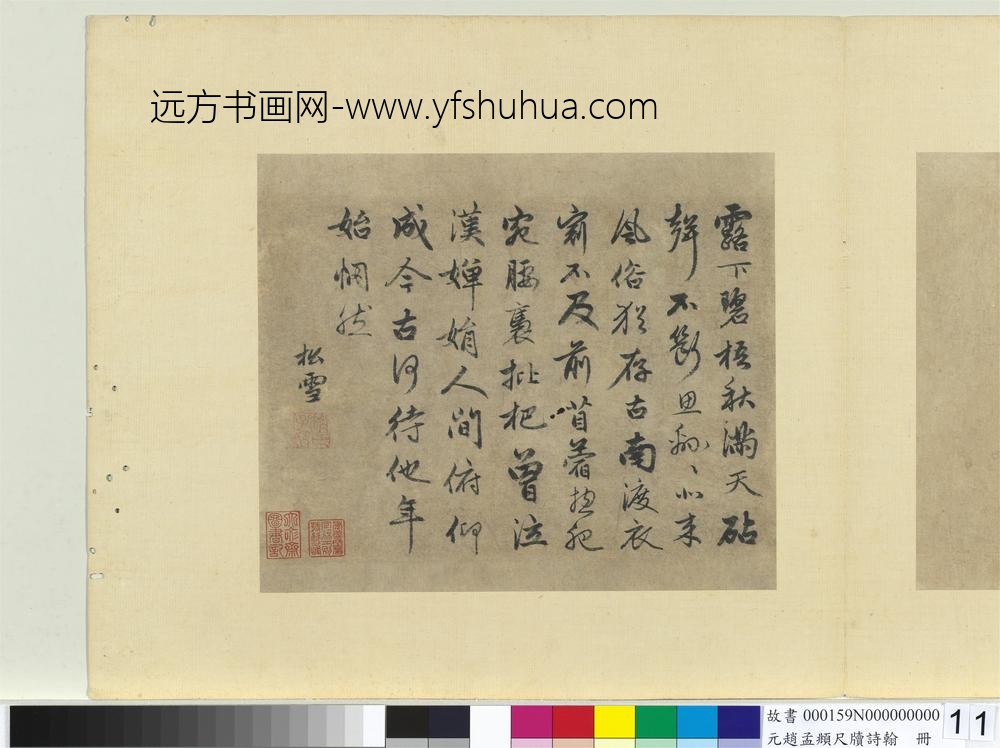 远方书画网-www.yfshuhua.com
露下碧梧秋滿天砧
聲不斷思綿〻北来
風俗猶存古南渡衣
冠不及前苜蓿揔肥
宛腰褭枇杷曾泣
漢嬋娟人間俯仰
成今古何待他年
始惘然
松雪
故書 000159N000000000
元趙孟頫尺牘詩翰 冊
11